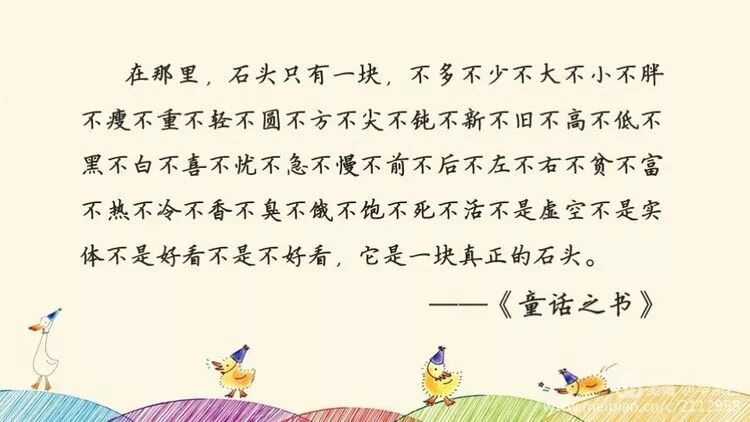 在那里，石头只有一块，不多不少不大不小不胖
不瘦不重不轻不圆不方不尖不钝不新不旧不高不低不
黑不白不喜不忧不急不慢不前不后不左不右不贫不富
不热不冷不香不臭不饿不饱不死不活不是虚空不是实
体不是好看不是不好看，它是一块真正的石头。
——《童话之书》